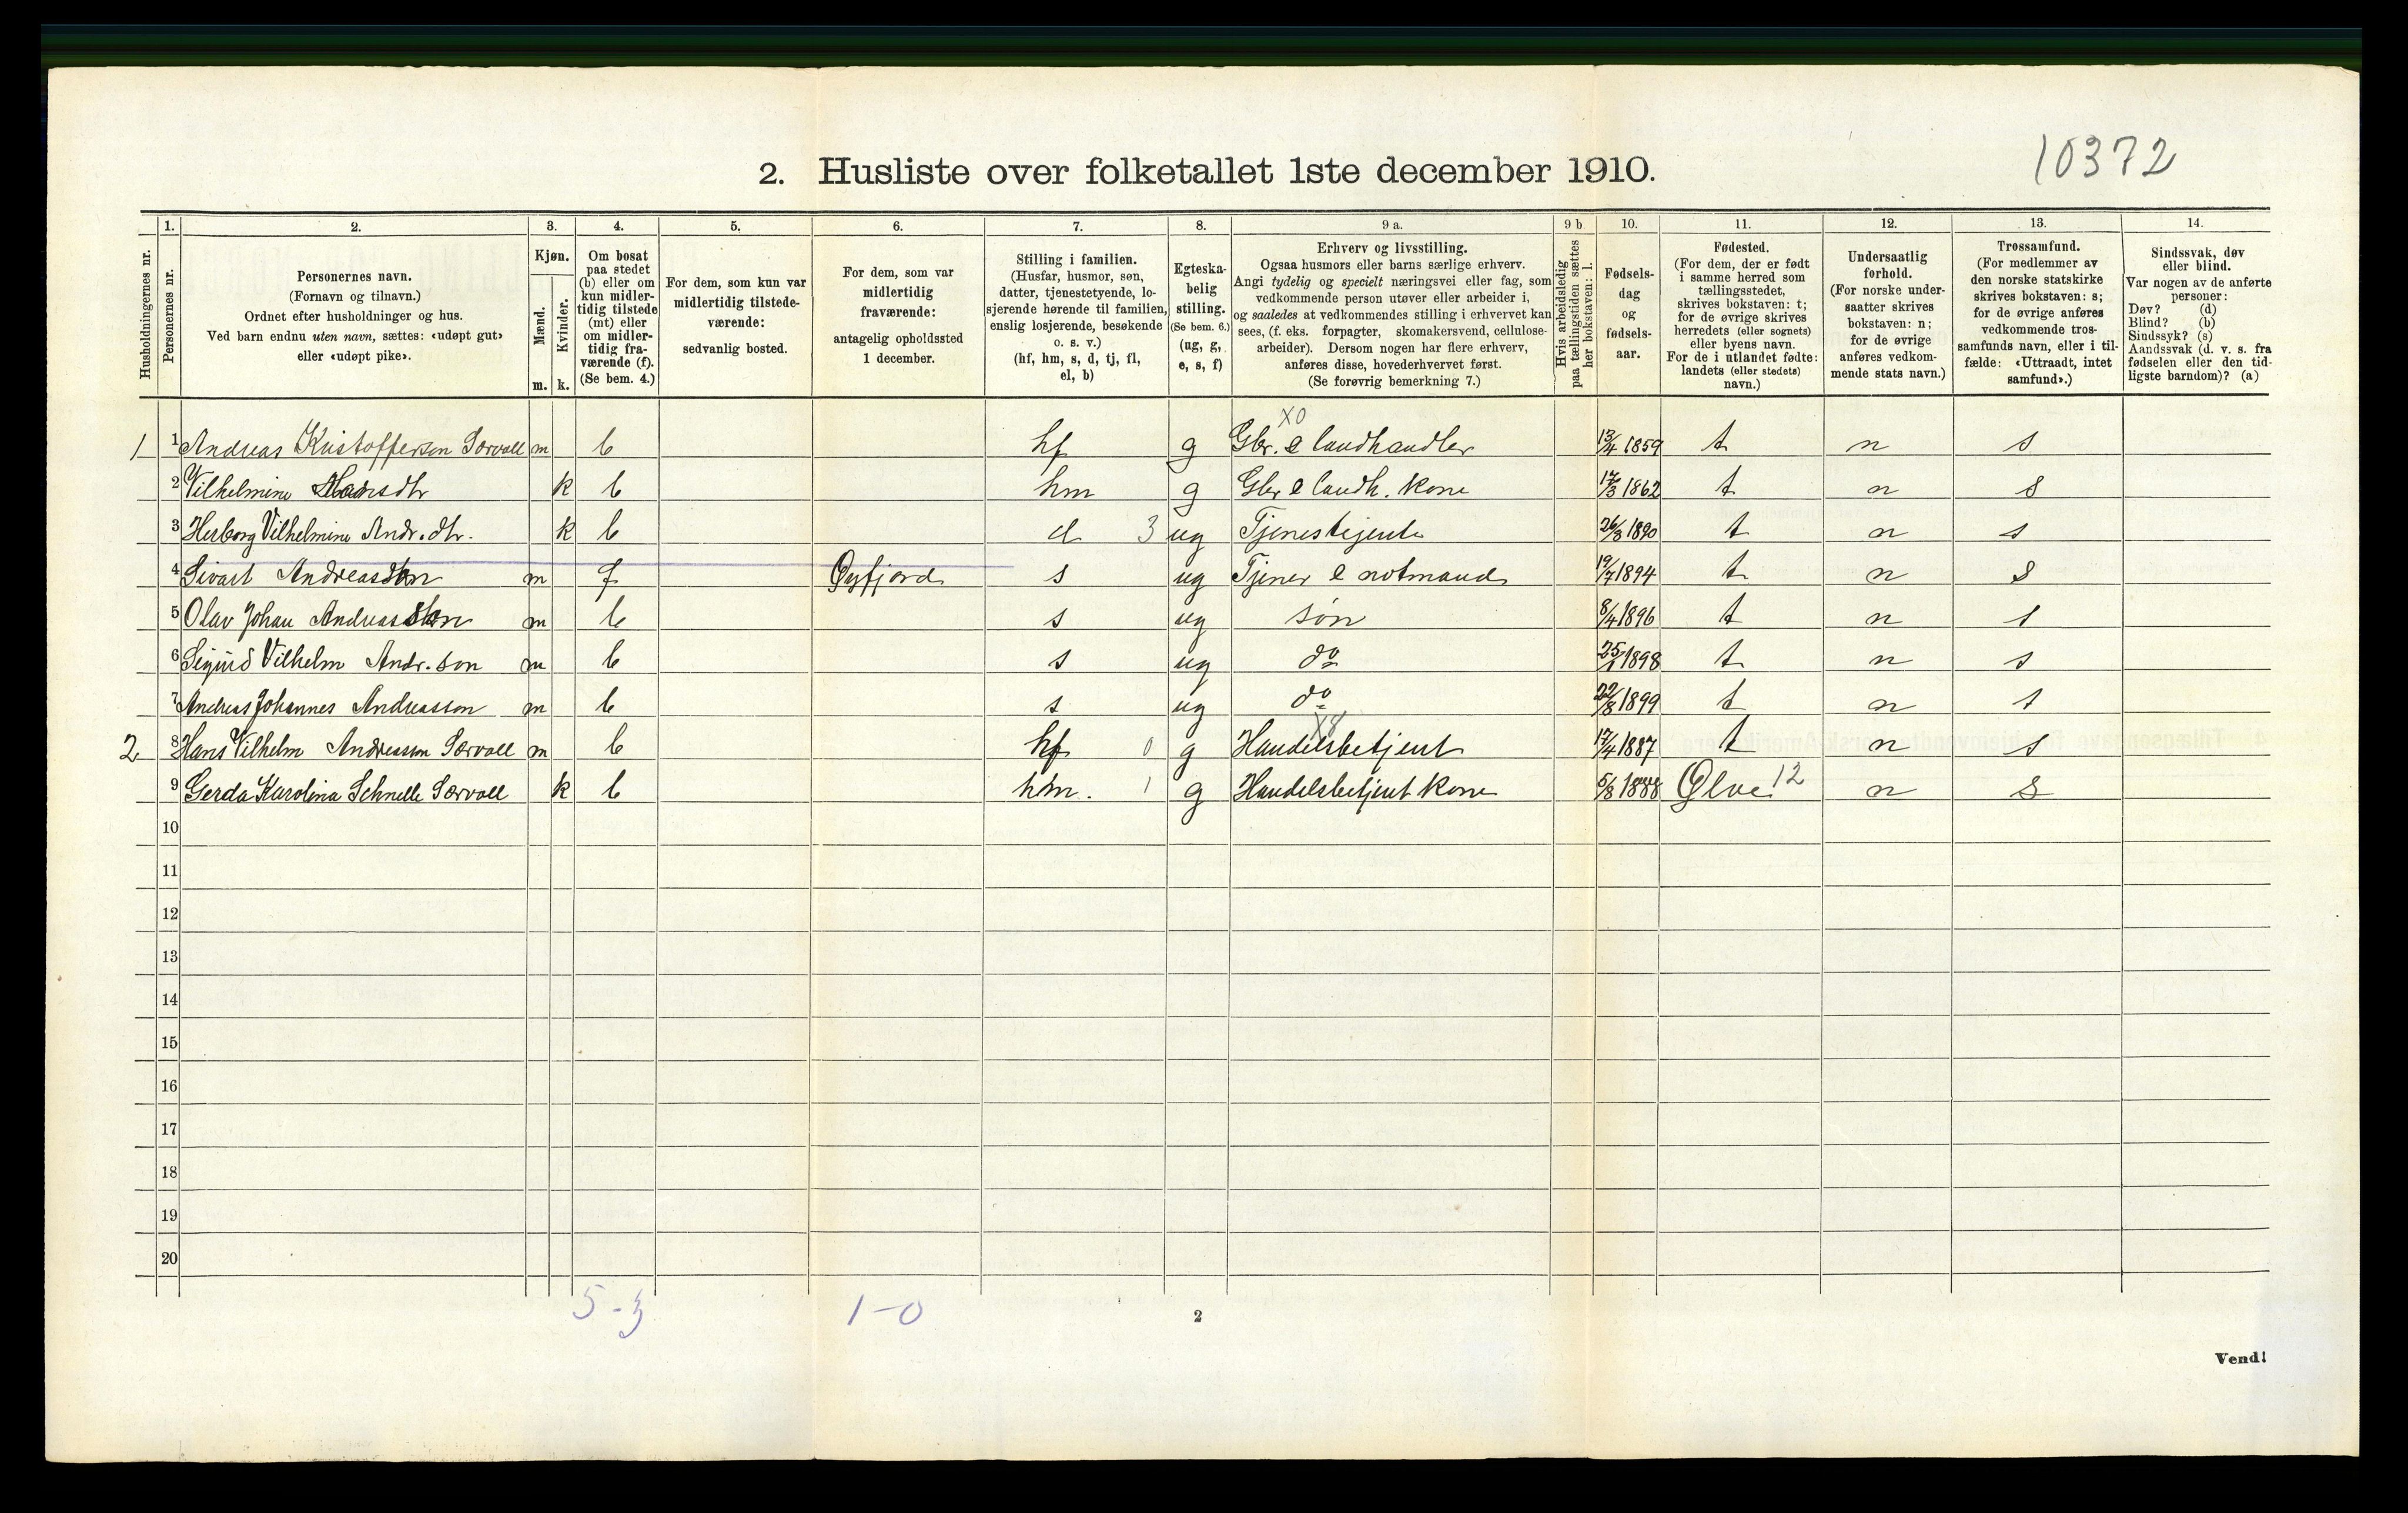 10372
2. Husliste over folketallet 1ste december 1910.
1. 2. 3. 4. 5. 6. 7. 8. 9 a. 9 b. 10. 11. 12. 13. 14.
Husholdningernes nr.
Personernes nr.
Personernes navn.
(Fornavn og tilnavn.)
Ordnet efter husholdninger og hus.
Ved barn endnu uten navn, sættes: «udøpt gut»
eller «udøpt pike».
Kjøn.
Mænd.
Kvinder.
m. k.
Om bosat
paa stedet
(b) eller om
kun midler-
tidig tilstede
(mt) eller
om midler-
tidig fra-
værende (f).
(Se bem. 4.)
For dem, som kun var
midlertidig tilstede-
værende:
sedvanlig bosted.
For dem, som var
midlertidig
fraværende:
antagelig opholdssted
1 december.
Stilling i familien.
(Husfar, husmor, søn,
datter, tjenestetyende, lo-
sjerende hørende til familien,
enslig losjerende, besøkende
o. s. v.)
(hf, hm, s, d, tj, fl,
el, b)
Egteska-
belig
stilling.
(Se bem. 6.)
(ug, g,
e, s, f)
Erhverv og livsstilling.
Ogsaa husmors eller barns særlige erhverv.
Angi tydelig og specielt næringsvei eller fag, som
vedkommende person utøver eller arbeider i,
og saaledes at vedkommendes stilling i erhvervet kan
sees, (f. eks. forpagter, skomakersvend, cellulose-
arbeider). Dersom nogen har flere erhverv,
anføres disse, hovederhvervet først.
(Se forøvrig bemerkning 7.)
Hvis arbeidsledig
paa tællingstiden sættes
her bokstaven: l.
Fødsels-
dag
og
fødsels-
aar.
Fødested.
(For dem, der er født
i samme herred som
tællingsstedet,
skrives bokstaven: t;
for de øvrige skrives
herredets (eller sognets)
eller byens navn.
For de i utlandet fødte:
landets (eller stedets)
navn.)
Undersaatlig
forhold.
(For norske under-
saatter skrives
bokstaven: n;
for de øvrige
anføres vedkom-
mende stats navn.)
Trossamfund.
(For medlemmer av
den norske statskirke
skrives bokstaven: s;
for de øvrige anføres
vedkommende tros-
samfunds navn, eller i til-
fælde: «Uttraadt, intet
samfund».)
Sindssvak, døv
eller blind.
Var nogen av de anførte
personer:
Døv? (d)
Blind? (b)
Sindssyk? (s)
Aandssvak (d. v. s. fra
fødselen eller den tid-
ligste barndom)? (a)
X0
1 1 Andreas Kristofferson Sørvoll m b hf g Gbr. & landhandler 13/4 1859 t n s
2 Vilhelmine Hansdtr k b hm g Gbr & landh. kone 17/3 1862 t n s
3 Herborg Vilhelmine Andr. dtr. k b d 3 ug Tjenestejente 26/8 1890 t n s
4 Sivart Andreassøn m f Øxfjord s ug Tjener & notmand 19/7 1894 t n s
5 Olav Johan Andreassøn m b s ug søn 8/4 1896 t n s
6 Sigurd Vilhelm Andr. son m b s ug do 1898 t n s
7 Andreas Johannes Andreasson m b s ug do 22/8 1899 t n s
X8
2 8 Hans Vilhelm Andreasson Sørvoll m b hf 0 g Handelsbetjent 17/4 1887 t n s
9 Gerda Karolina Schnelle Sørvoll k b hm. 1 g Handelsbetjent kone 5/8 1888 Ølve 12 n s
10
11
12
13
14
15
16
17
18
19
20
5-3 1-0
2
Vend!